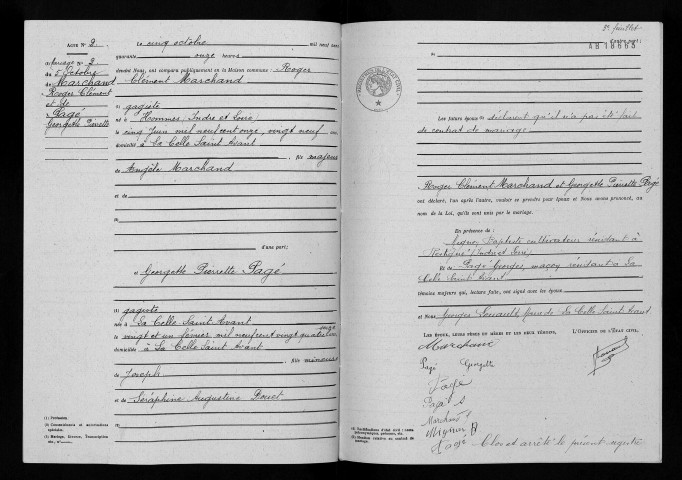 Acte N° 2
Mariage N° 2
du 5 Octobre
de Marchand
Roger Clément
et de
Pagé
Georgette Pierrette
Le cinq octobre mil neuf cent
quarante onze heures
devant Nous, ont comparu publiquement en la Maison commune : Roger
Clément Marchand
(1) gagiste
né à Hommes (Indre et Loire)
le cinq Juin mil neuf cent onze, vingt neuf ans
domicilié à La Celle Saint Avant
, fils majeur
de Angèle Marchand
et de
(2)
d'une part;
et Georgette Pierrette Pagé
(1) gagiste
née à La Celle Saint Avant
le vingt et un février mil neuf cent vingt quatre
domiciliée à La Celle Saint Avant
, fille mineure
de Joseph
et de
Séraphine Augustine Douet
(1) Profession.
(2) Consentements et autorisations spéciales.
(3) Mariage, Divorce, Transcription
3e feuillet
d'autre part;
Les futurs époux déclarent qu'il n'a pas été fait
de contrat de mariage
Roger Clément Marchand et Georgette Pierrette Pagé
ont déclaré, l'un après l'autre, vouloir se prendre pour époux et Nous avons prononcé, au
nom de la Loi, qu'ils sont unis par le mariage.
En présence de
Baptiste cultivateur résidant à
(Indre et Loire)
Et de Pagé Georges, maçon résidant à La
Celle Saint Avant
témoins majeurs qui, lecture faite, ont signé avec les époux
et Nous Georges maire de La Celle Saint Avant
Les époux, leurs pères et mères et les deux témoins, L'Officier de l'État civil,
Marchand
Pagé Georgette
Pagé
Pagé S
Marchand
Pagé Clos et arrêté le présent registre